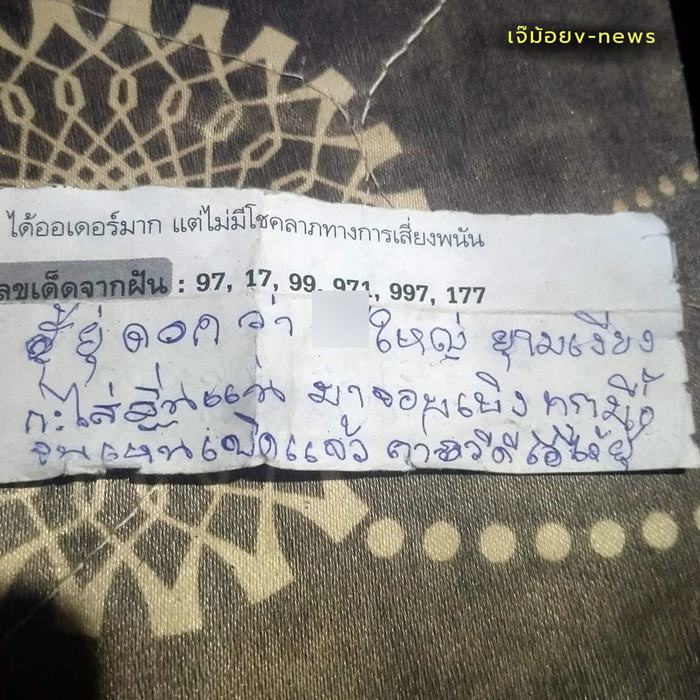 เจ๊ม้อยv-news
ได้ออเดอร์มาก แต่ไม่มีโชคลาภทางการเสี่ยงพนัน
ลขเด็ดจากฝัน : 97, 17, 99, 971, 997, 177
ฮู้ยุ่ ดอก ว่า ใหญ่ ยามเงี่ยง
กะใส่สิ้นแน่ มาจอบเบิ่ง
จนเหนเบิดแล้ว